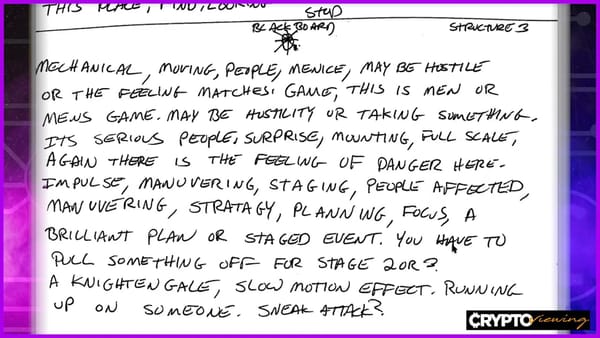 THIS PLACE, FIND, LOOKING
STUD
BLACKBOARD
STRUCTURE 3
MECHANICAL, MOVING, PEOPLE, MENICE, MAY BE HOSTILE
OR THE FEELING MATCHES. GAME, THIS IS MEN OR
MENS GAME. MAY BE HUSTILITY OR TAKING SOMETHING.
ITS SERIOUS PEOPLE, SURPRISE, MOUNTING, FULL SCALE,
AGAIN THERE IS THE FEELING OF DANGER HERE.
IMPULSE, MANUVERING, STAGING, PEOPLE AFFECTED,
MANUVERING, STRATAGY, PLANNING, FOCUS, A
BRILLIANT PLAN OR STAGED EVENT. YOU HAVE TO
PULL SOMETHING OFF FOR STAGE 2 OR 3.
A KNIGHTENGALE, SLOW MOTION EFFECT. RUNNING
UP ON SOMEONE. SNEAK ATTACK?
CRYPTO Viewing